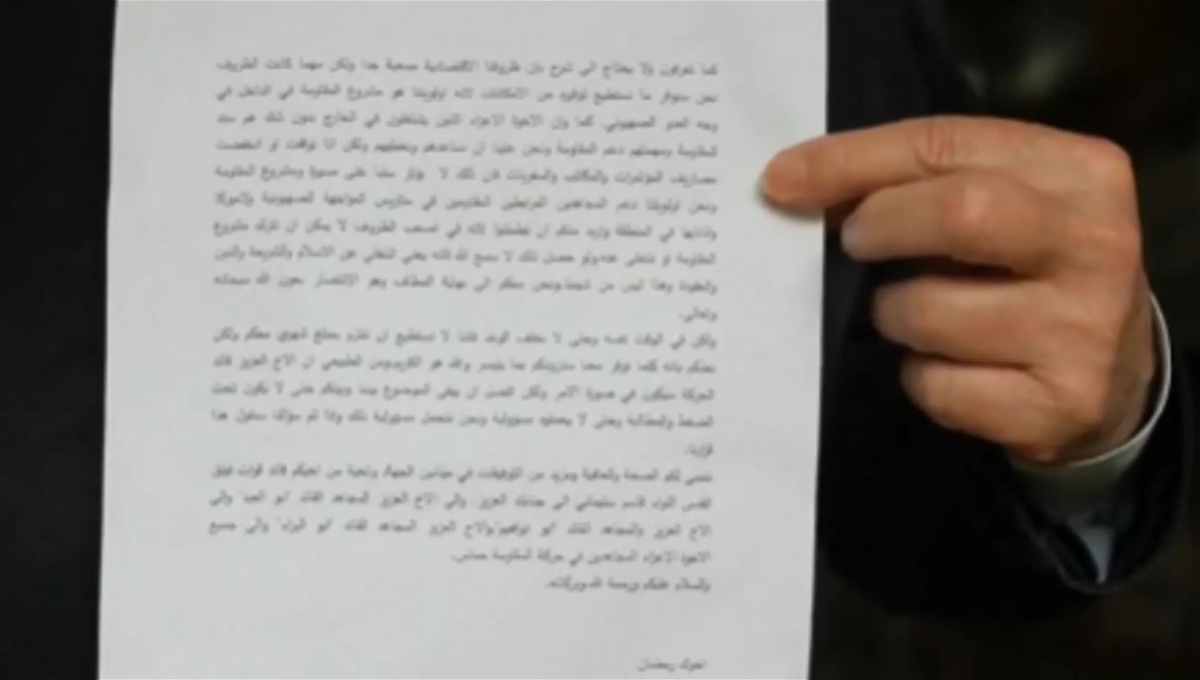 كما تعرفون ولا يحتاج الى شرح بان ظروفنا الاقتصادية صعبة جدا ولكن مهما كانت الظروف
نحن سنوفر ما نستطيع توفيره من الامكانات لانه اولويتنا هو مشروع المقاومة في الداخل في
وجه العدو الصهيوني. كما وإن الاخوة الاعزاء الذين يشتغلون في الخارج بدون شك هم سند
للمقاومة ومهمتهم دعم المقاومة ونحن علينا ان نساعدهم ونغطيهم ولكن اذا توقفت او انخفضت
مصاريف المؤتمرات والمكاتب والسفريات فان ذلك لا يؤثر سلبا على مسيرة ومشروع المقاومة
ونحن اولويتنا دعم المجاهدين المرابطين المقاومين في متاريس المواجهة الصهيونية وامیرکا
واذنابها في المنطقة واريد منكم ان تطمئنوا لانه في اصعب الظروف لا يمكن ان نترك مشروع
المقاومة او نتخلى عنه ولو حصل ذلك لا سمح الله فانه يعني التخلي عن الاسلام والشريعة والدين
والعقيدة وهذا ليس من شيمنا ونحن معكم الى نهاية المطاف وهو الانتصار بعون الله سبحانه
وتعالى.
ولكن في الوقت نفسه وحتى لا نخلف الوعد فاننا لا نستطيع ان نلتزم بمبلغ شهري معكم ولكن
نعدكم بانه كلما توفر معنا سنزودكم بما يتيسر والله هو الكريم ومن الطبيعي ان الاخ العزيز قائد
الحركة سيكون في صورة الامر ولكن افضل ان يبقى الموضوع بيننا وبينكم حتى لا يكون تحت
الضغط والمطالبة وحتى لا يحملوه مسؤولية ونحن نتحمل مسؤولية ذلك واذا تم سؤالنا سنقول هذا
قرارنا.
نتمنى لكم الصحة والعافية ومزيد من التوفيقات في ميادين الجهاد وتحية من اخيكم قائد قوات فيلق
القدس اللواء قاسم سليماني الى جنابك العزيز. والى الاخ العزيز المجاهد القائد "ابو العبد" والى
الاخ العزيز والمجاهد القائد "ابو ابراهيم" والاخ العزيز المجاهد القائد "ابو البراء" والى جميع
الاخوة الاعزاء المجاهدين في حركة المقاومة حماس.
والسلام عليكم ورحمة الله وبركاته.
اخوك رمضان